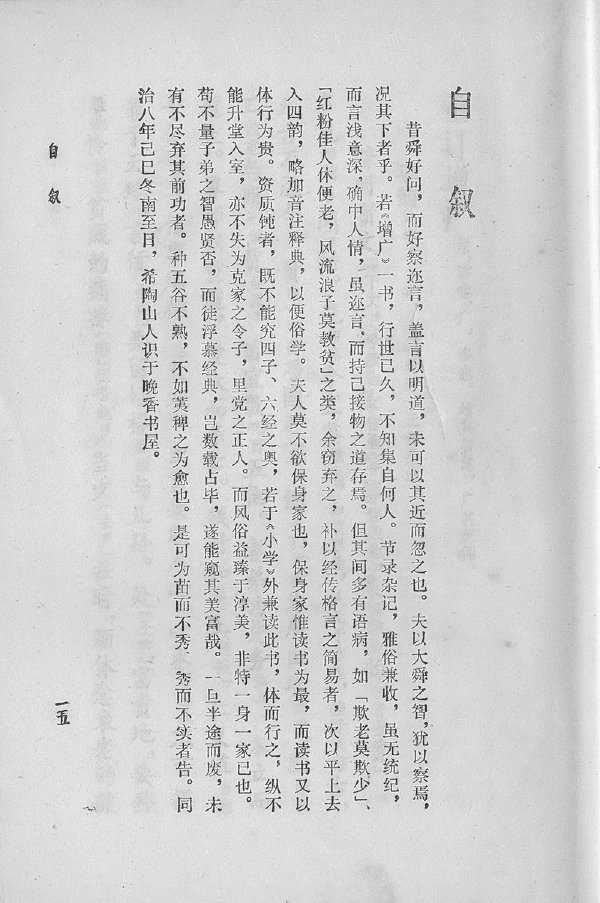 自叙
昔舜好问，而好察迩言，盖言以明道，未可以其近而忽之也。夫以大舜之智，犹以察焉，
况其下者乎。若《增广》一书，行世已久，不知集自何人。节录杂记，雅俗兼收，虽无统纪，
而言浅意深，确中人情，虽迩言，而持己接物之道存焉。但其间多有语病，如「欺老莫欺少」、
「红粉佳人休便老，风流浪子莫教贫」之类，余窃弃之，补以经传格言之简易者，次以平上去
入四韵，略加音注释典，以便俗学。夫人莫不欲保身家也，保身家惟读书为最，而读书又以
体行为贵。资质钝者，既不能究四子、六经之奥，若于《小学》外兼读此书，体而行之，纵不
能升堂入室，亦不失为克家之令子，里党之正人。而风俗益臻于淳美，非特一身一家已也。
苟不量子弟之智愚贤否，而徒浮慕经典，岂数载占毕，遂能窥其美富哉。一旦半途而废，未
有不尽弃其前功者。种五谷不熟，不如荑稗之为愈也。是可为苗而不秀、秀而不实者告。同
治八年己巳冬南至日，希陶山人识于晚香书屋。
自叙
一五